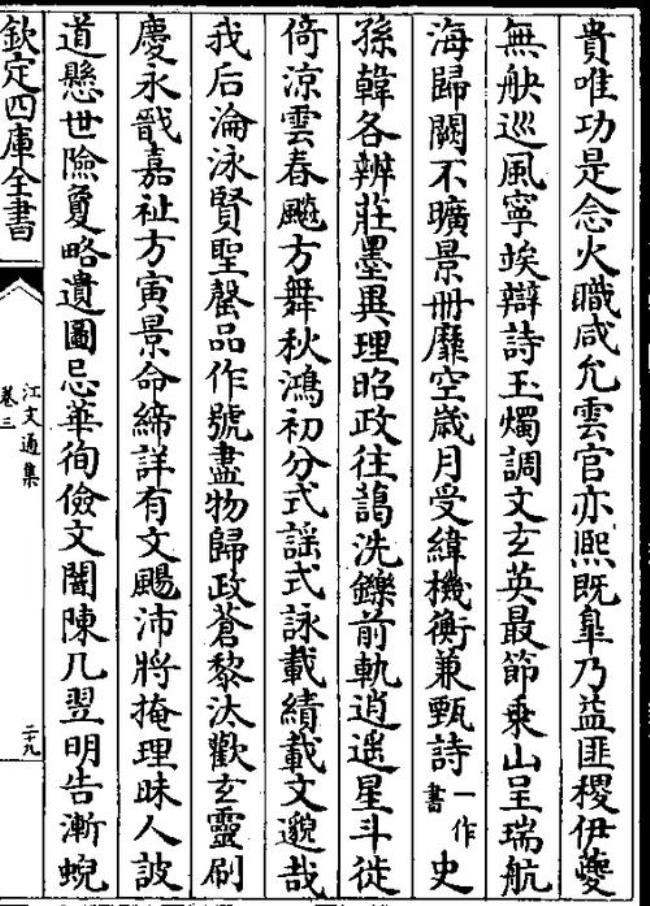 貴唯功是念火職咸允雲官亦熙既臯乃益匪稷伊夔
無觖巡風寧竢辯詩玉燭調文玄英最節乘山呈瑞航
海歸闕不曠景冊靡空歲月受緯機衡兼甄詩一作書史
孫韓各辨莊墨異理昭政往藹洗鑠前軌逍遥星斗徙
倚凉雲春飈方舞秋鴻初分式謡式詠載績載文邈哉
我后淪泳賢聖罄品作號盡物歸政蒼黎汰歡玄靈刷
慶永戬嘉祉方寅景命締詳有文颺沛將掩理昧人詖
道懸世險敻略遺圖忌華徇儉文闇陳几翌明告漸蜺
欽定四庫全書
江文通集
卷三
二十九